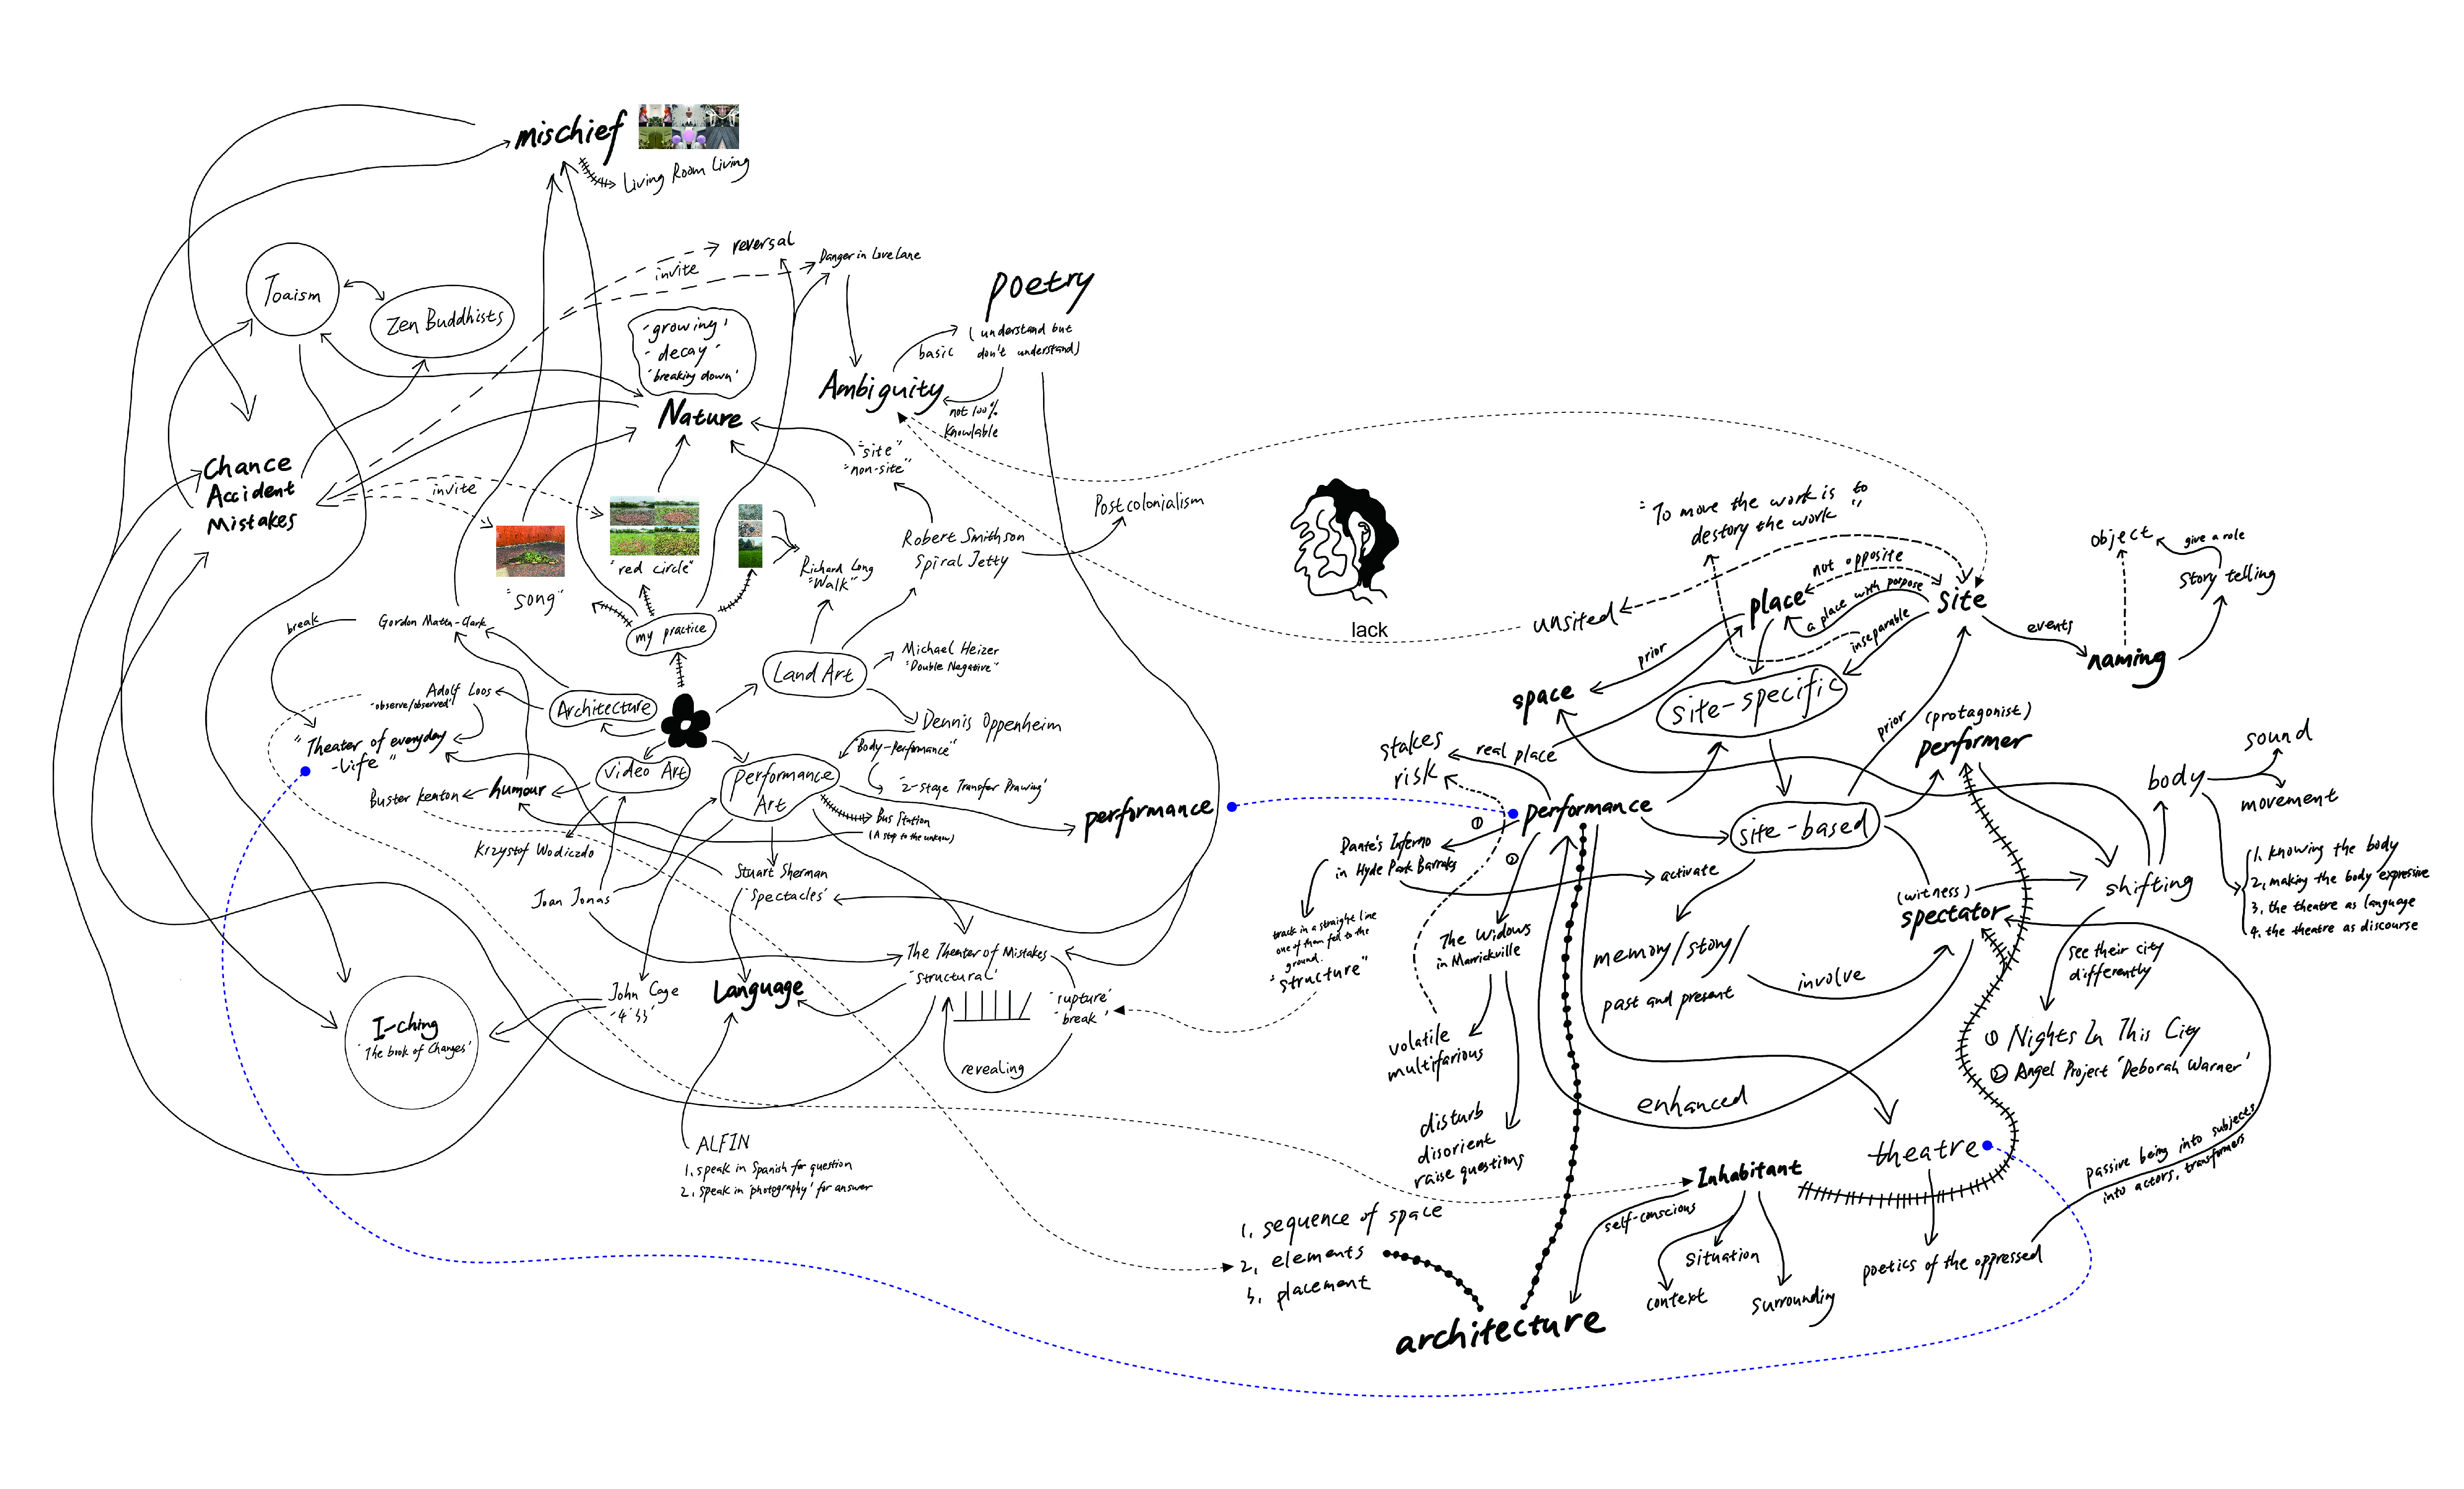 mischief
Living Room Living
reversal
invite
Danger in Love Lane
Toaism
Zen Buddhists
poetry
(understand but
don't understand)
basic
'growing'
'decay'
'breaking down'
Nature
Ambiguity
not 100%
knowlable
"site"
"non-site"
Chance
Accident
Mistakes
invite
"song"
"red circle"
Richard Long
"Walk"
Robert Smithson
Spiral Jetty
Postcolonialism
my practice
break
Gordon Matta-Clark
Land Art
Michael Heizer
"Double Negative"
Adolf Loos
"observe/observed"
Architecture
Dennis Oppenheim
"Body-Performance"
"Theater of everyday
-life"
Video Art
Performance
Art
'2-stage Transfer Drawing'
Buster Keaton
humour
Bus Station
(A stop to the unknow)
performance
Krzystof Wodiczdo
Stuart Sherman
'Spectacles'
Joan Jonas
The Theater of Mistakes
'structural'
'rupture'
'break'
revealing
John Cage
'4'33'
Language
I-ching
'The book of Changes'
ALFIN
1. speak in Spanish for question
2. speak in 'photography' for answer
lack
"To move the work is to
destory the work"
unsited
place
not opposite
a place with porpose
inseparable
Site
events
naming
object
give a role
Story telling
prior
space
site-specific
prior
(protagonist)
performer
stakes
risk
real place
performance
site-based
①
②
Dante's Inferno
in Hyde Park Barraks
activate
track in a straight line
one of them fell to the
ground.
"structure"
The Widows
in Marrickville
memory/story/
past and present
involve
(witness)
spectator
shifting
body
sound
movement
1. knowing the body
2, making the body expresive
3. the theatre as language
4. the theatre as discourse
see their city
differently
① Nights In This City
② Angel Project 'Deborah Warner'
volatile
multifarious
disturb
disorient
raise questions
enhanced
theatre
passive being into subjects
into actors, transformers
poetics of the oppressed
Inhabitant
self-conscious
situation
context
surrounding
1. sequence of space
2, elements
3, placement
architecture